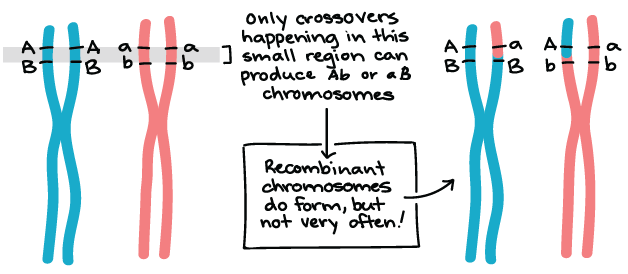 A A a a
B B b b
only crossovers
happening in this
small region can
produce Ab or aB
chromosomes
Recombinant
chromosomes
do form, but
not very often!
A a A a
B B b b